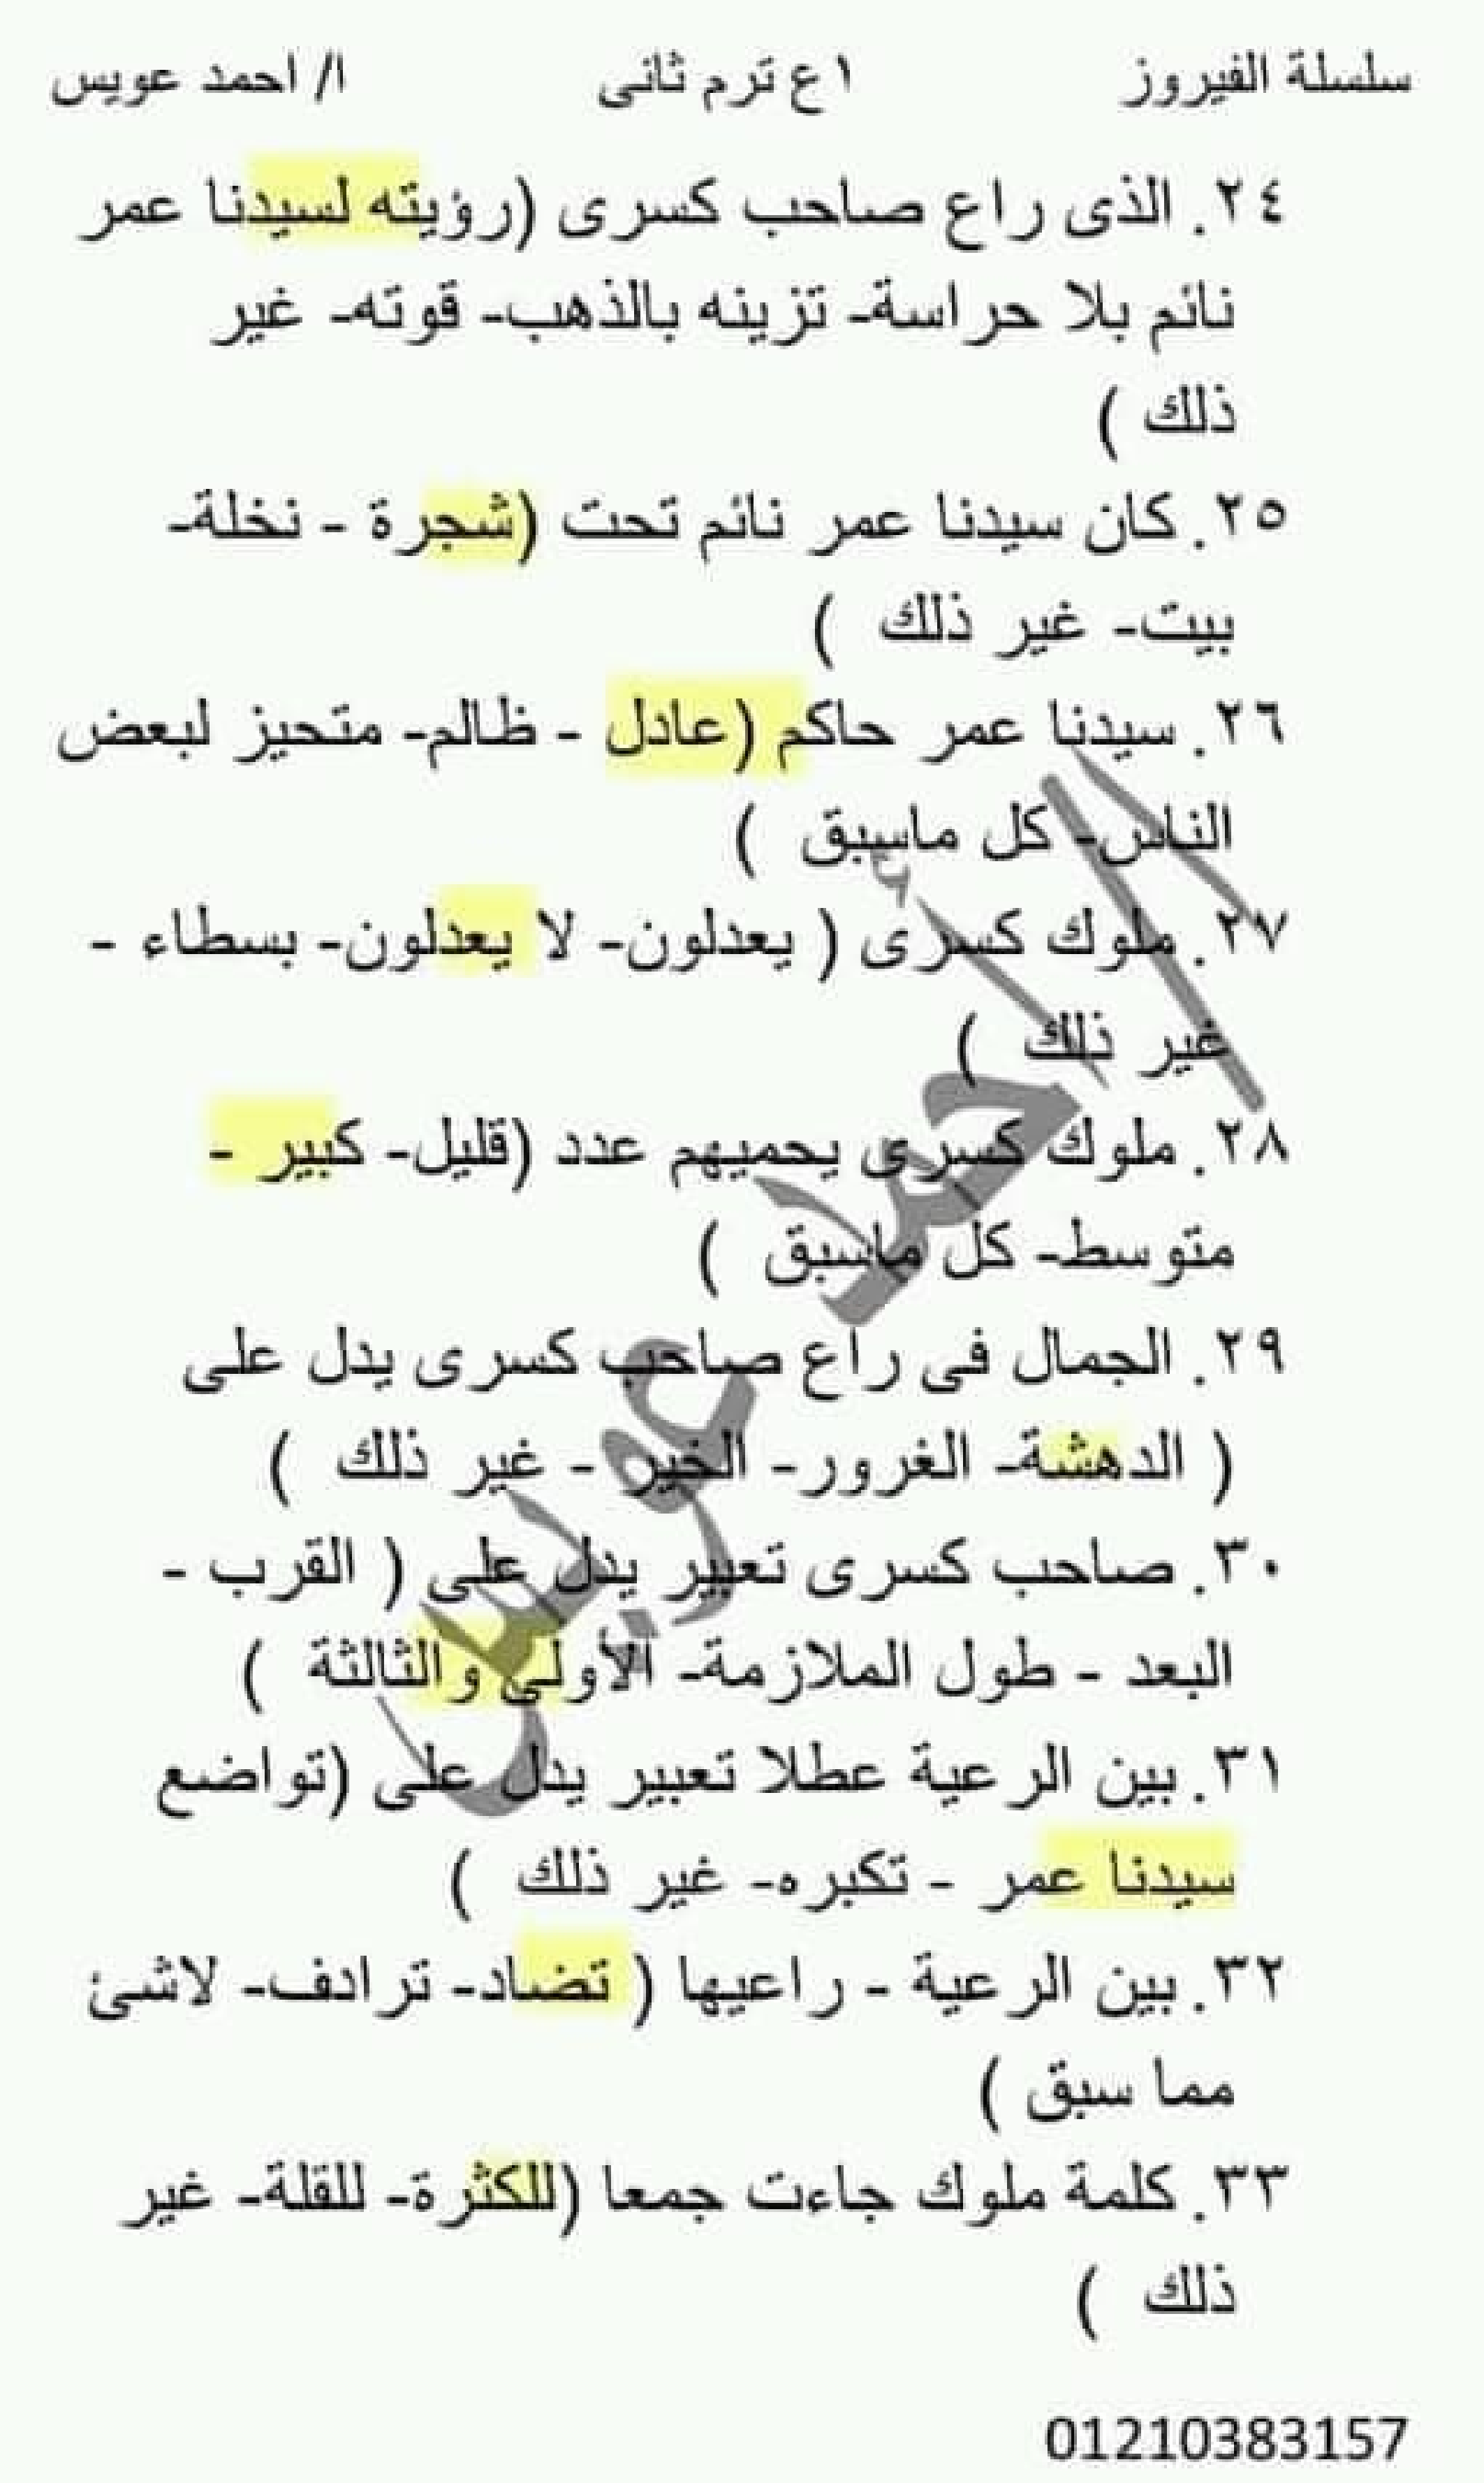 سلسلة الفيروز ١ع ترم ثانى ا/ احمد عويس
٢٤. الذى راع صاحب كسرى (رؤيته لسيدنا عمر
نائم بلا حراسة- تزينه بالذهب- قوته- غير
ذلك )
٢٥. كان سيدنا عمر نائم تحت (شجرة - نخلة-
بيت- غير ذلك )
٢٦. سيدنا عمر حاكم (عادل - ظالم- متحيز لبعض
الناس- كل ماسبق )
٢٧. ملوك كسرى ( يعدلون- لا يعدلون- بسطاء -
غير ذلك )
٢٨. ملوك كسرى يحميهم عدد (قليل- كبير -
متوسط- كل ماسبق )
٢٩. الجمال فى راع صاحب كسرى يدل على
( الدهشة- الغرور- الخير - غير ذلك )
٣٠. صاحب كسرى تعبير يدل على ( القرب -
البعد - طول الملازمة- الأولى والثالثة )
٣١. بين الرعية عطلا تعبير يدل على (تواضع
سيدنا عمر - تكبره- غير ذلك )
٣٢. بين الرعية - راعيها ( تضاد- ترادف- لاشئ
مما سبق )
٣٣. كلمة ملوك جاءت جمعا (للكثرة- للقلة- غير
ذلك )
01210383157
أ/ أحمد عويس